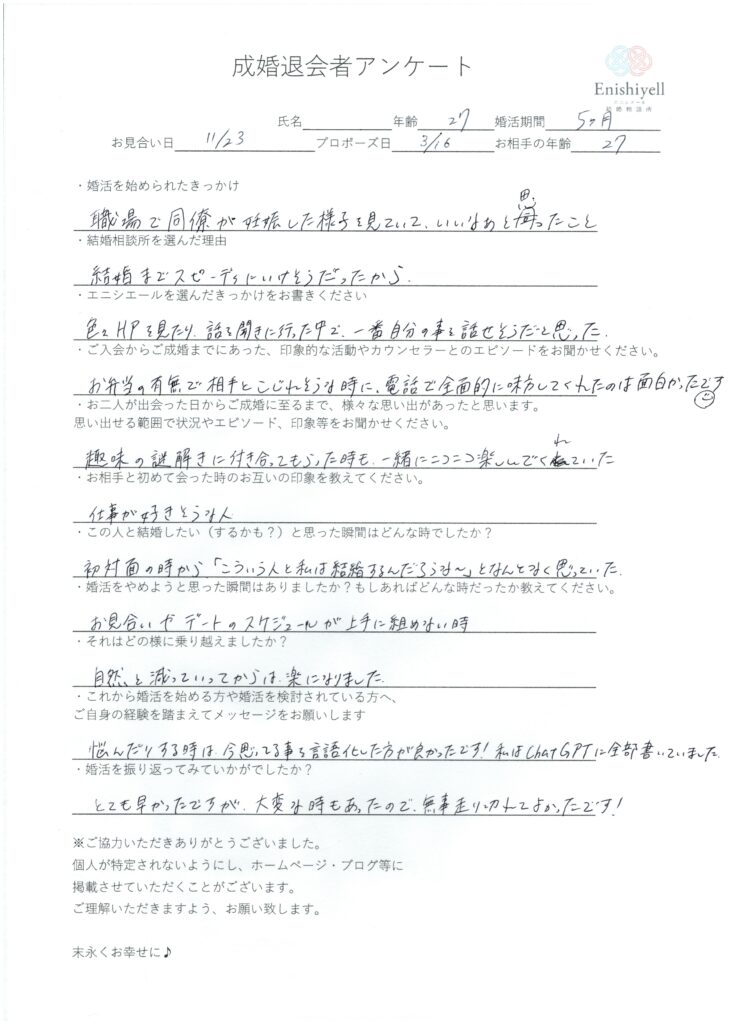 成婚退会者アンケート
Enishiyell
エニシエール
結婚相談所
氏名 年齢 27 婚活期間 5ヶ月
お見合い日 11/23 プロポーズ日 3/16 お相手の年齢 27
・婚活を始められたきっかけ
職場で同僚が妊娠した様子を見ていて、いいなあと思ったこと
・結婚相談所を選んだ理由
結婚までスピーディにいけそうだったから
・エニシエールを選んだきっかけをお書きください
色々HPを見たり、話を聞きに行った中で、一番自分の事を話せそうだと思った
・ご入会からご成婚までにあった、印象的な活動やカウンセラーとのエピソードをお聞かせください。
お弁当の有無で相手とこじれそうな時に、電話で全面的に味方してくれたのは面白かったです
・お二人が出会った日からご成婚に至るまで、様々な思い出があったと思います。
思い出せる範囲で状況やエピソード、印象等をお聞かせください。
趣味の謎解きに付き合ってもらった時も、一緒にニコニコ楽しんでくれていた
・お相手と初めて会った時のお互いの印象を教えてください。
仕事が好きそうな人
・この人と結婚したい（するかも？）と思った瞬間はどんな時でしたか？
初対面の時から「こういう人と私は結婚するんだろうな〜」となんとなく思っていた
・婚活をやめようと思った瞬間はありましたか？もしあればどんな時だったか教えてください。
お見合いやデートのスケジュールが上手に組めない時
・それはどの様に乗り越えましたか？
自然と減っていってからは楽になりました
・これから婚活を始める方や婚活を検討されている方へ、
ご自身の経験を踏まえてメッセージをお願いします
悩んだりする時は、今思ってる事を言語化した方が良かったです！私はChatGPTに全部書いていました
・婚活を振り返ってみていかがでしたか？
とても早かったですが、大変な時もあったので、無事走り切れてよかったです！
※ご協力いただきありがとうございました。
個人が特定されないようにし、ホームページ・ブログ等に
掲載させていただくことがございます。
ご理解いただきますよう、お願い致します。
末永くお幸せに♪